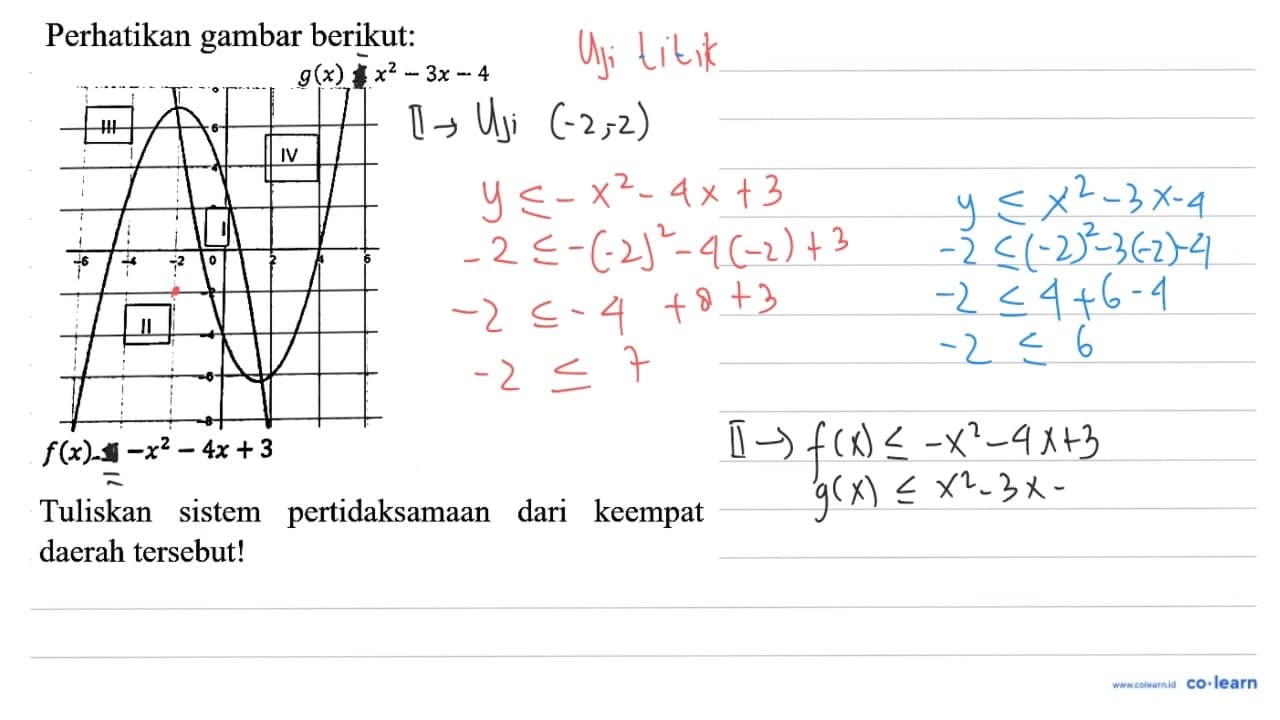 Perhatikan gambar berikut:
g(x) = x² – 3x – 4
III
IV
I
II
6
4
-6 -4 -2 0 2 4 6
-2
-4
-6
-8
f(x) = –x² – 4x + 3
Tuliskan sistem pertidaksamaan dari keempat
daerah tersebut!
Uji titik
II → Uji (-2,-2)
y ≤ -x² - 4x + 3
-2 ≤ -(-2)² - 4(-2) + 3
-2 ≤ -4 + 8 + 3
-2 ≤ 7
y ≤ x² - 3x - 4
-2 ≤ (-2)² - 3(-2) - 4
-2 ≤ 4 + 6 - 4
-2 ≤ 6
II → f(x) ≤ -x² - 4x + 3
g(x) ≤ x² - 3x -
www.colearn.id co·learn